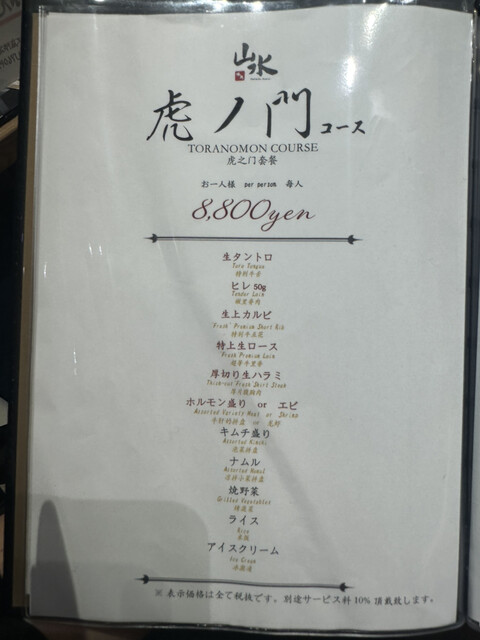 山水
虎ノ門コース
TORANOMON COURSE
虎之门套餐
お一人様 per person 每人
8,800yen
生タントロ
Toro Tongue
特制牛舌
ヒレ 50g
Tender Loin
生上カルビ
Fresh Premium Short Rib
特制牛五花
特上生ロース
Fresh Premium Loin
厚切り生ハラミ
Thick-cut Fresh Skirt Steak
ホルモン盛り or エビ
Assorted Variety Meat or Shrimp
キムチ盛り
Assorted Kimchi
泡菜拼盘
ナムル
Assorted Namul
凉拌小菜拼盘
焼野菜
Grilled Vegetables
烤蔬菜
ライス
Rice
米饭
アイスクリーム
Ice Cream
冰激凌
※ 表示価格は全て税抜です。別途サービス料 10% 頂戴致します。